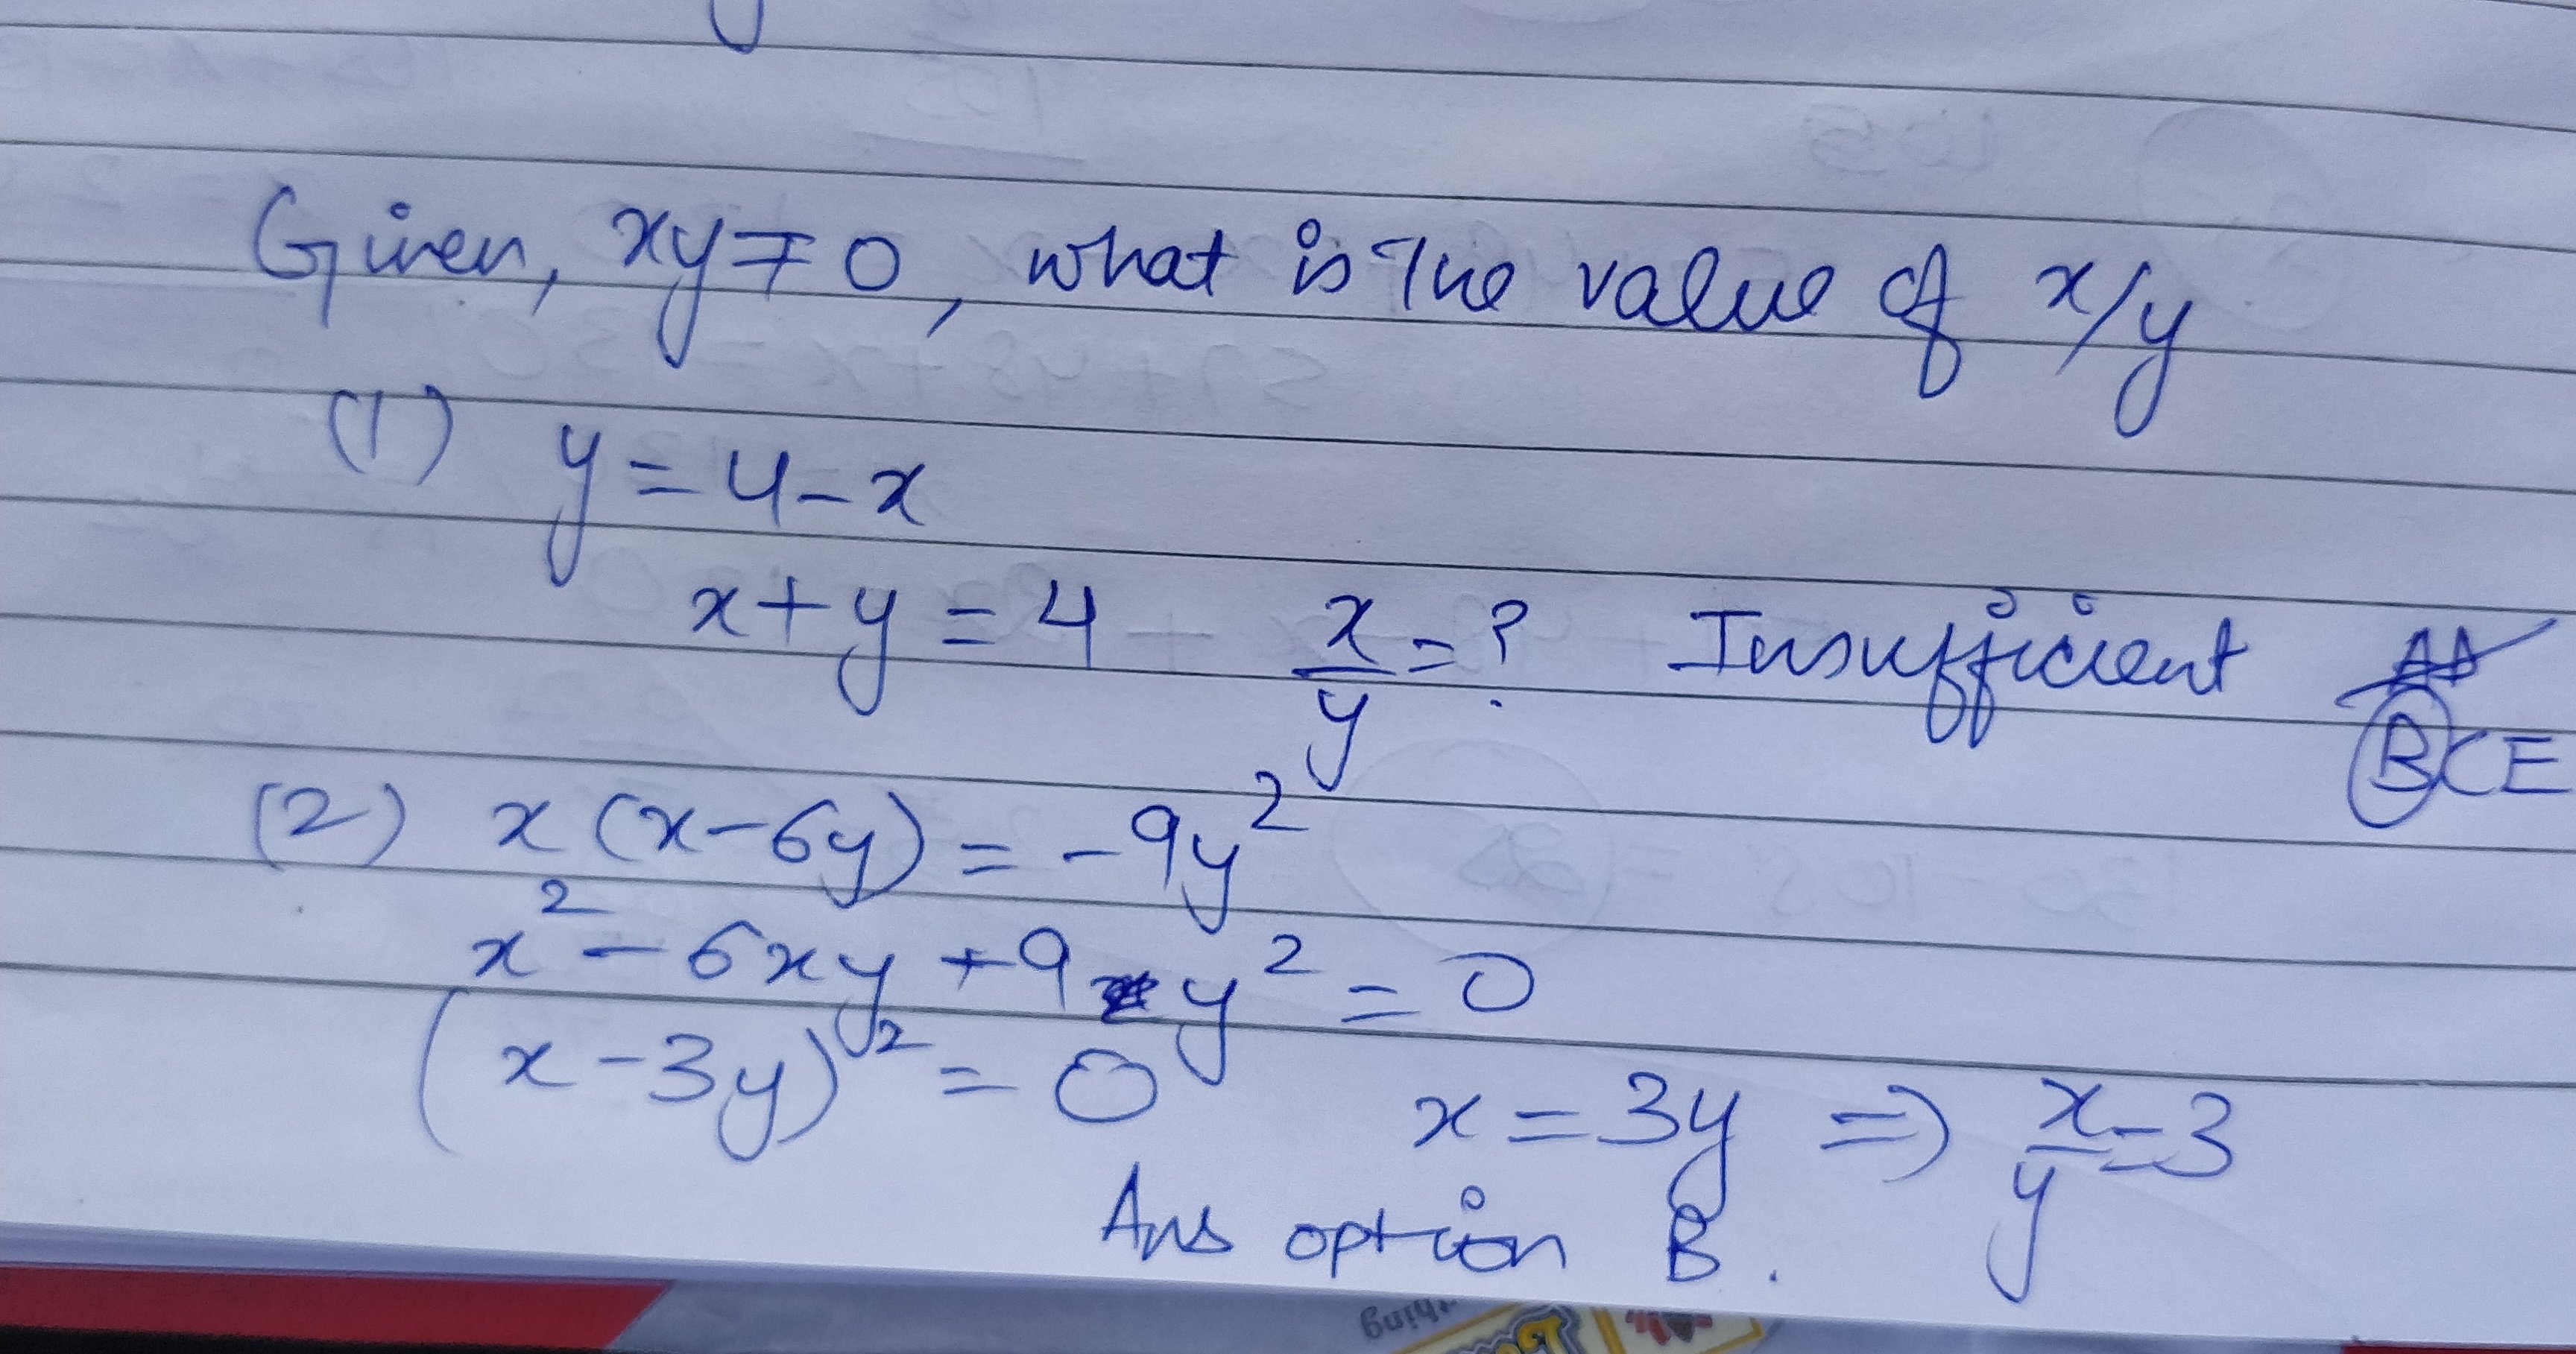 Given, xy ≠ 0, what is the value of x/y
(1) y = 4 - x
x + y = 4 x/y = ? Insufficient
BCE
(2) x (x - 6y) = -9y²
x² - 6xy + 9y² = 0
(x - 3y)² = 0 x = 3y ⇒ x/y = 3
Ans option B.
thing